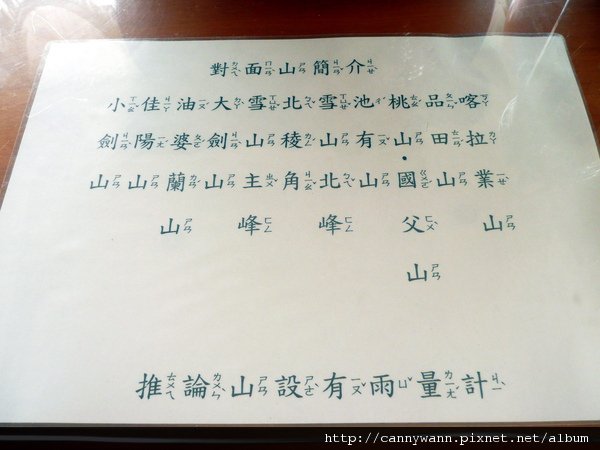 對面山簡介
小劍山
佳陽山
油婆蘭山
大劍山
雪山主峰
北稜角
雪山北峰
池有山
桃山·國父山
品田山
喀拉業山
推論山設有雨量計
http://cannywann.pixnet.net/album